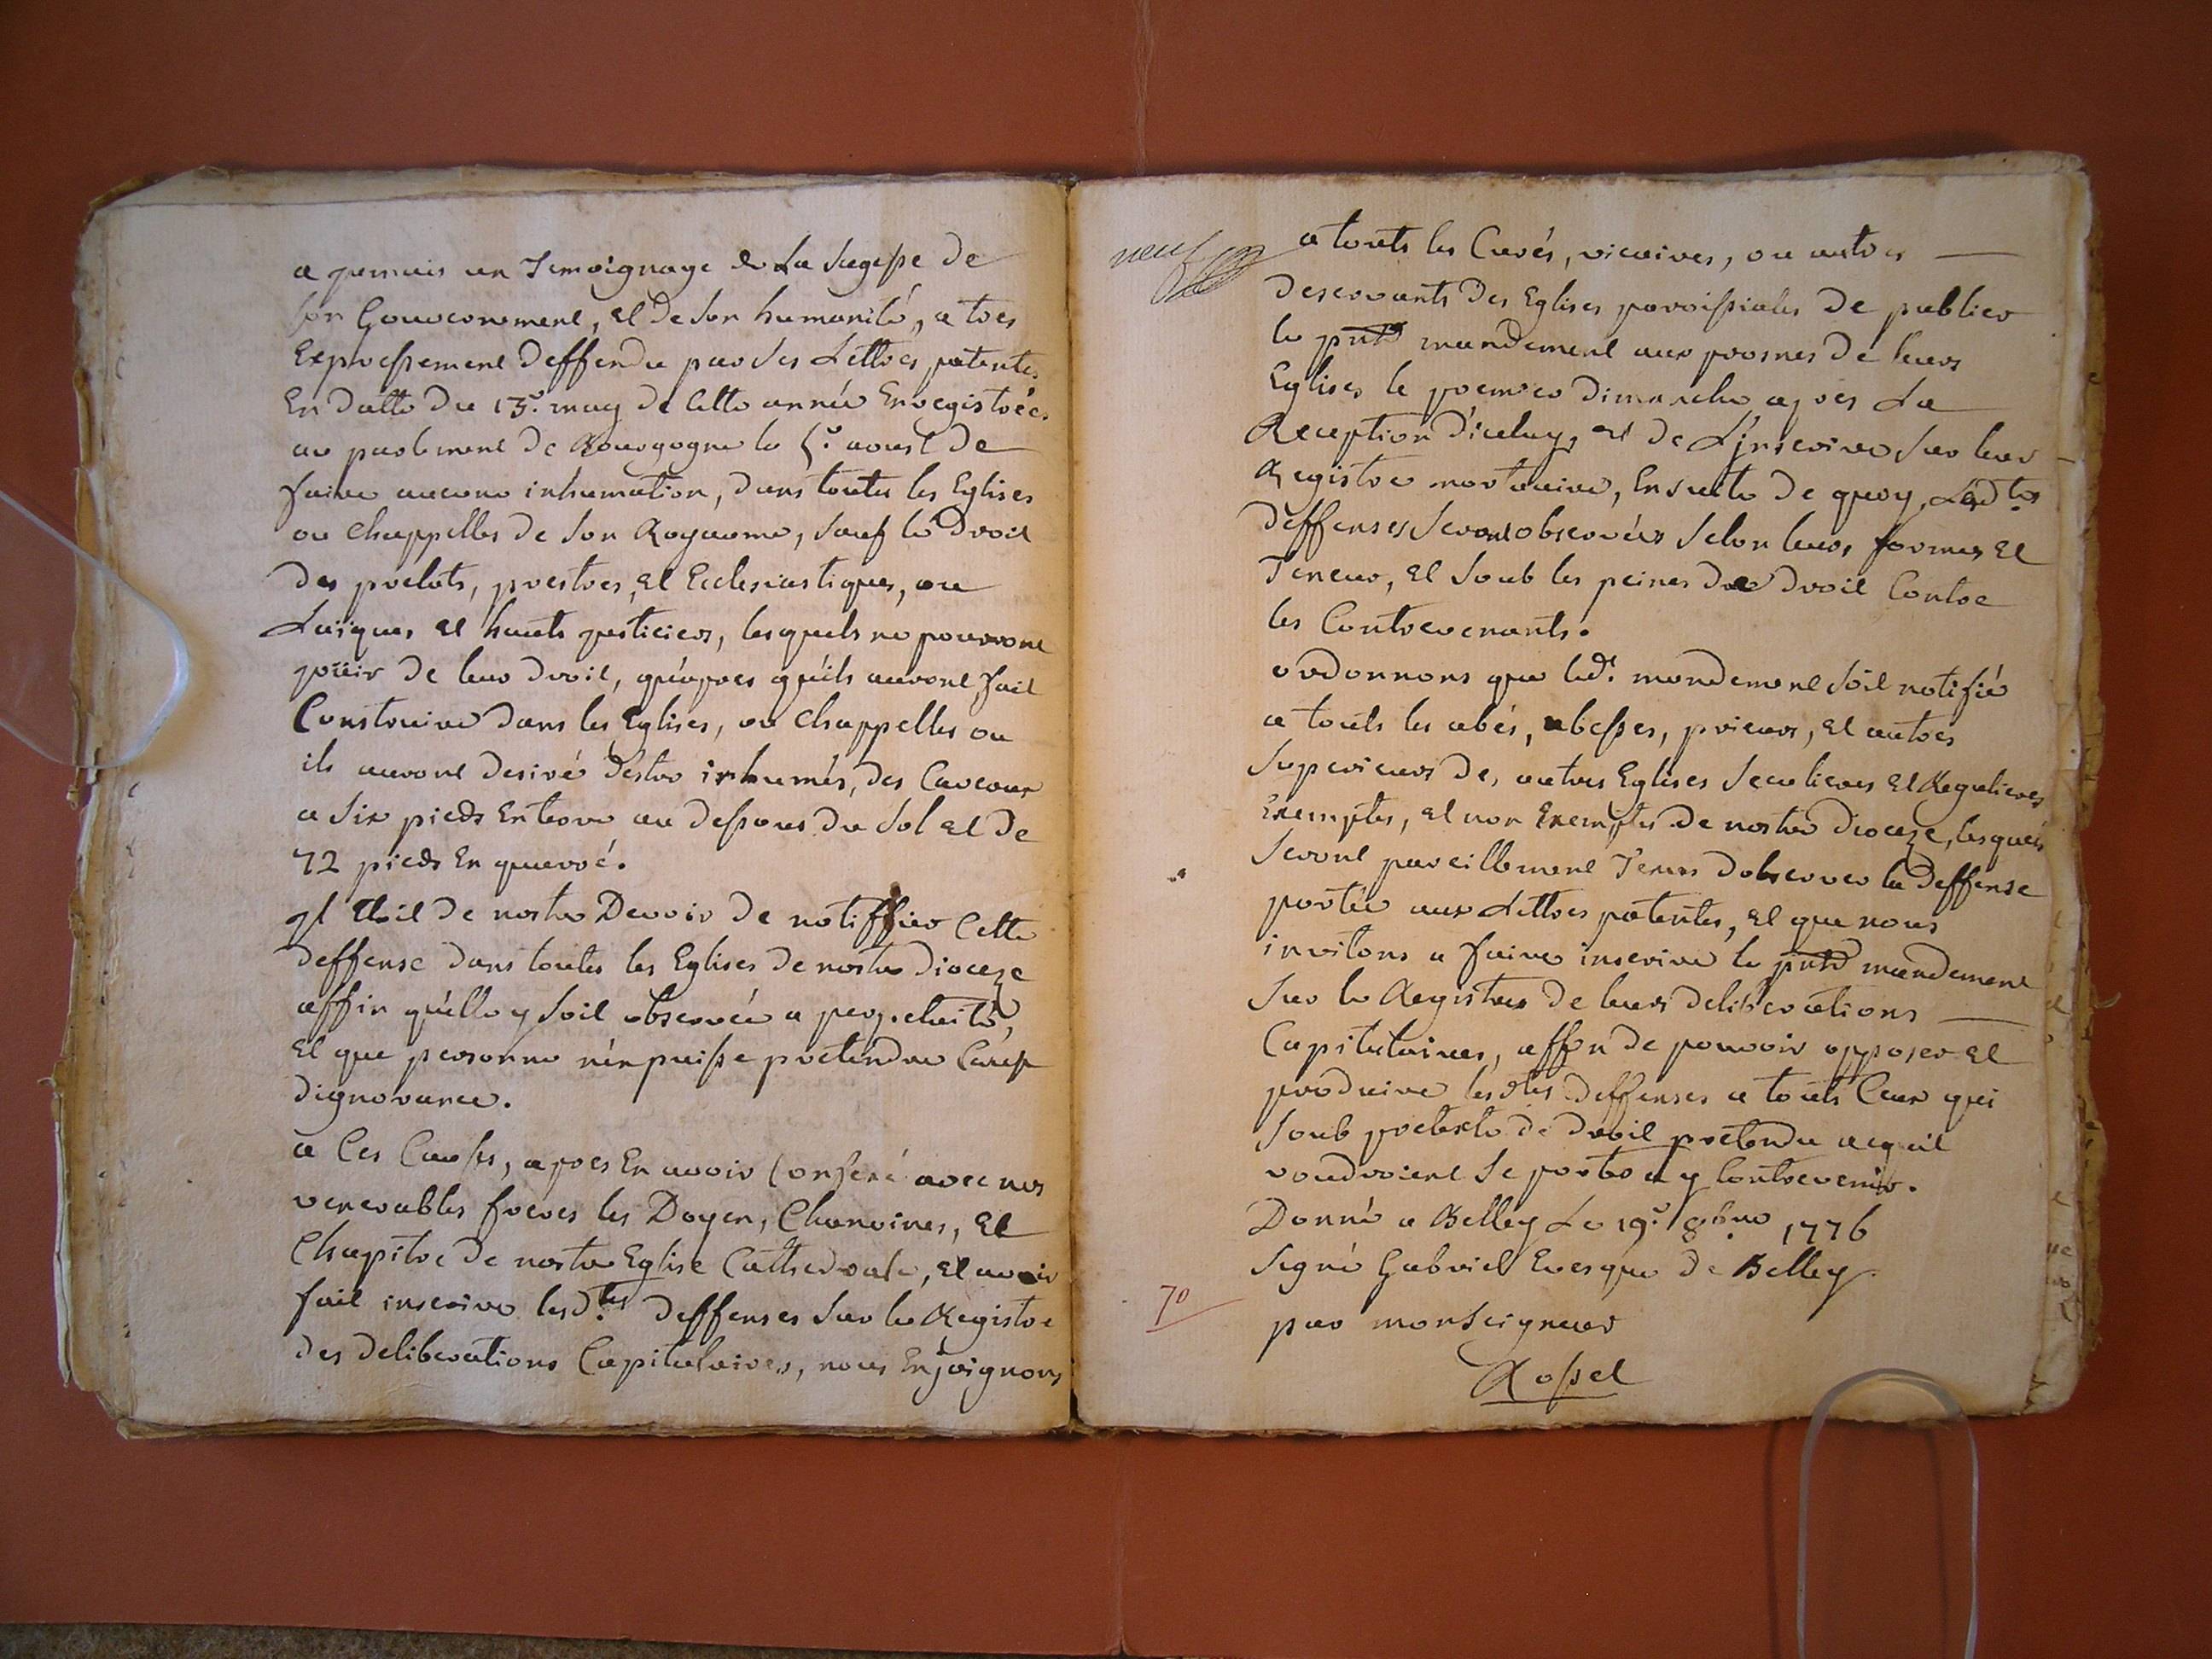 a jamais un Temoignage de La Sagesse de
son Gouvernement, et de son humanité, a tres
Expressement deffendu par ses Lettres patentes
En datte du 13e. may de cette année Enregistrées
au parlement de Bourgogne le 5e. aoust de
faire aucune inhumation, dans toutes les Eglises
ou Chappelles de son Royaume, sauf le droit
des prélats, prestres, et Ecclesiastiques, ou
Laïques et hauts justiciers, lesquels ne pourront
joüir de leur droit, qu'apres qu'ils auront fait
Construire dans les Eglises, ou chappelles ou
ils auront desiré d'estre inhumés, des Caveaux
a six pieds En terre au dessous du sol et de
72 pieds En quarré.
jl Etoit de nostre Devoir de notiffier Cette
deffense dans toutes les Eglises de nostre dioceze
affin qu'elle y soit observée a perpetuité,
et que personne n'en puisse pretendre Cause
dignorance.
a Ces Causes, apres En avoir conferé avec nos
venerables freres les Doyen, Chanoines, et
Chapitre de nostre Eglise Cathedrale, et avoir
fait inscrire lesd.tes deffenses sur le Registre
des deliberations Capitulaires, nous Enjoignons
neuf
a touts les Curés, vicaires, ou autres
deservants des Eglises paroissiales de publier
le pnt mandement aux prosnes de leurs
Eglises le premier dimanche apres La
Reception d'iceluy, et de L'jnscrire sur leur
Registre mortuaire, Ensuite de quoy Lesd.tes
deffenses seront observées selon leurs formes et
Teneur, et soub les peines de droit Contre
les Contrevenants.
ordonnons que led.t mandement soit notifié
a touts les abés, abesses, prieurs, et autres
superieurs des autres Eglises seculieres et Regulieres
Exemptes, et non Exemptes de nostre dioceze, lesquels
seront pareillement Tenus d'observer la deffense
portée aux Lettres patentes, et que nous
invitons a faire inscrire le pnt mandement
sur le Registre de leurs deliberations
Capitulaires, affin de pouvoir opposer et
produire lesdtes deffenses a touts Ceux qui
soub pretexte de droit pretendu acquit
voudroient se porter a y Contrevenir.
Donné a Belley Le 19e. 8bre 1776
signé Gabriel Evesque de Belley
par monseigneur
70
Rossel